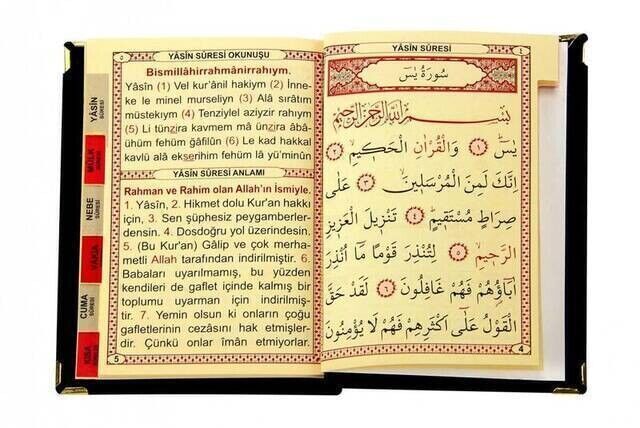 ٥ YÂSİN SÛRESİ OKUNUŞU
Bismillâhirrahmânirrahıym.
Yâsîn (1) Vel kur'ânil hakiym (2) İnne-
ke le minel murseliyn (3) Alâ sırâtım
müstekıym (4) Tenziylel aziyzir rahiym
(5) Li tünzira kavmem mâ ünzira âbâ-
ühüm fehüm ğâfilûn (6) Le kad hakkal
kavlü alâ ekserihim fehüm lâ yü'minûn
YÂSİN SÛRESİ ANLAMI
Rahman ve Rahim olan Allah'ın İsmiyle.
1. Yâsîn, 2. Hikmet dolu Kur'an hakkı
için, 3. Sen şüphesiz peygamberler-
densin. 4. Dosdoğru yol üzerindesin.
5. (Bu Kur'an) Gâlip ve çok merha-
metli Allah tarafından indirilmiştir. 6.
Babaları uyarılmamış, bu yüzden
kendileri de gaflet içinde kalmış bir
toplumu uyarman için indirilmiş-
tir. 7. Yemin olsun ki onların çoğu
gafletlerinin cezasını hak etmişler-
dir. Çünkü onlar îmân etmiyorlar.
5
YÂSİN
SÛRESİ
MÜLK
NEBE
SÛRESİ
VAKIA
CUMA
SÛRESİ
KISA
YÂSİN SÛRESİ ٤
سُورَةُ يٰسٓ
بِسْمِ اللّٰهِ الرَّحْمٰنِ الرَّحِيمِ
يٰسٓ ﴿١﴾ وَالْقُرْاٰنِ الْحَكِيمِ ﴿٢﴾
اِنَّكَ لَمِنَ الْمُرْسَلِينَ ﴿٣﴾ عَلٰى
صِرَاطٍ مُسْتَقِيمٍ ﴿٤﴾ تَنْزِيلَ الْعَزِيزِ
الرَّحِيمِ ﴿٥﴾ لِتُنْذِرَ قَوْمًا مَٓا اُنْذِرَ
اٰبَٓاؤُهُمْ فَهُمْ غَافِلُونَ ﴿٦﴾ لَقَدْ حَقَّ
الْقَوْلُ عَلٰٓى اَكْثَرِهِمْ فَهُمْ لَا يُؤْمِنُونَ
4